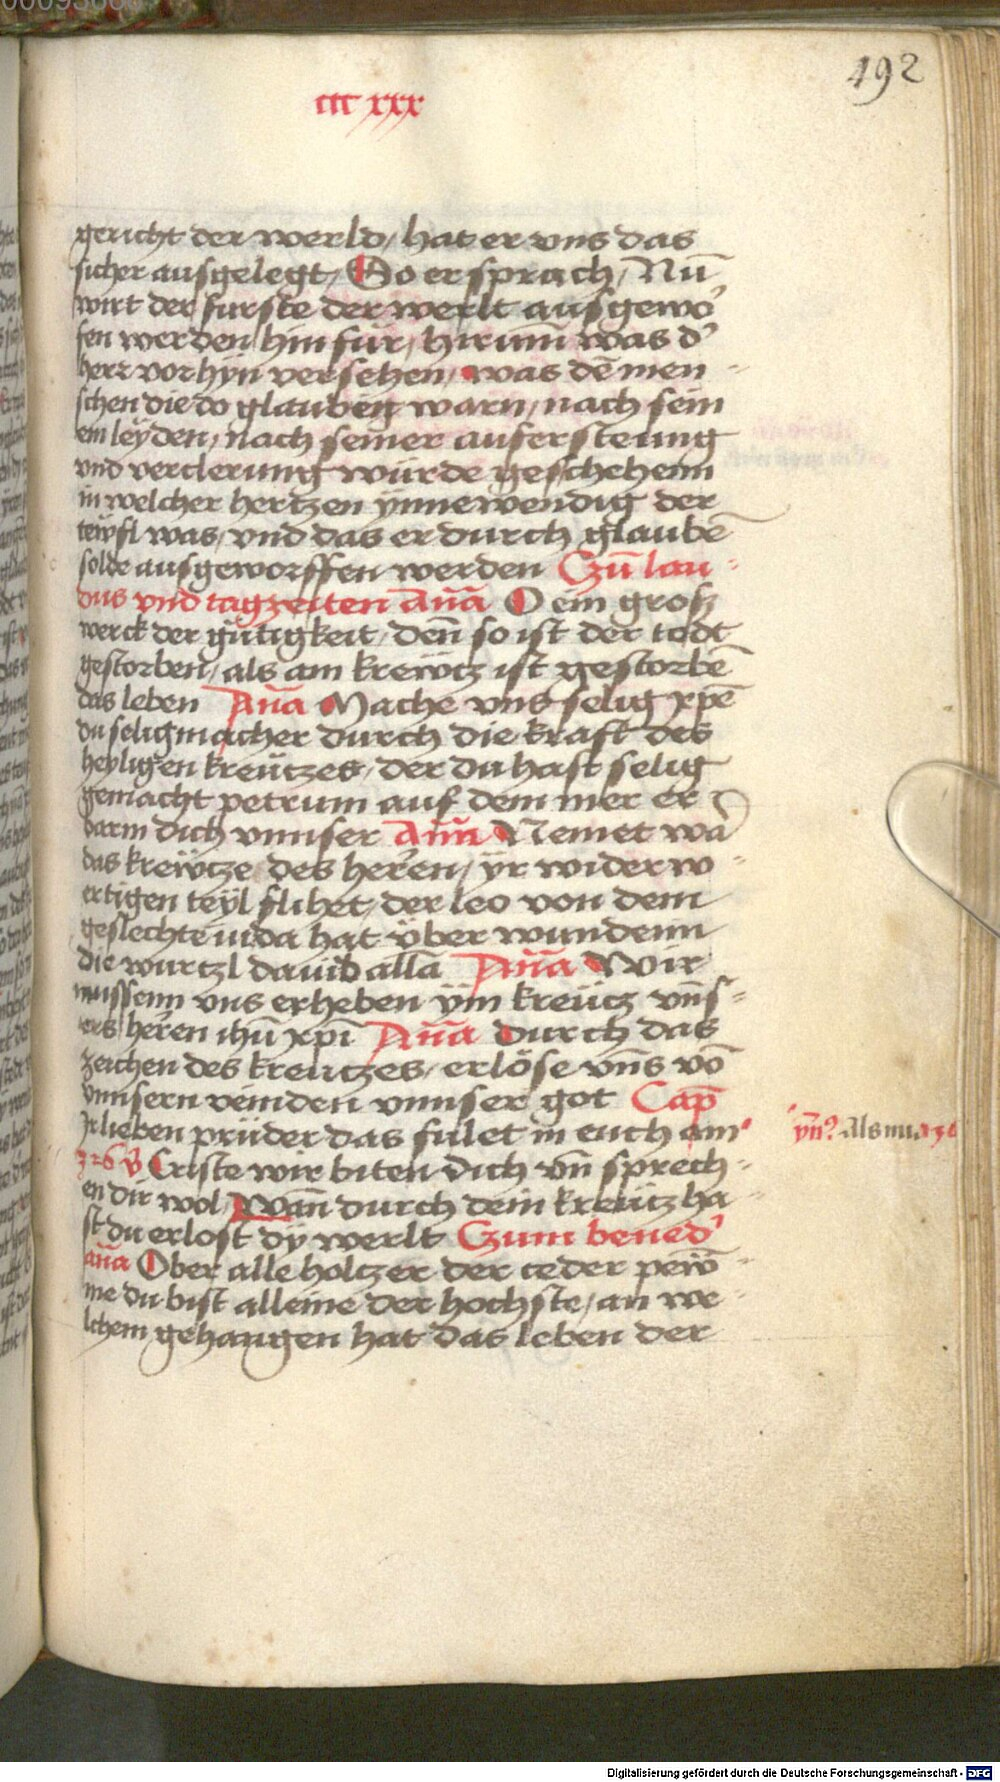 ccc xxx
492
gericht der werld, hat er vns das
sicher ausgelegt, Do er sprach, Nu̅
wirt der furste der werlt ausgewo'
fen werden hin für, hirum̅ was d'
herr vorhyn versehen, was de̅ men-
schen die do glauben warn, nach sein
em leyden, nach seiner aufersteung
vnd verclerung würde gescheheim
in welcher hertzen ynnewendig der
teyfl was, vnd das er durch glaube̅
solde ausgeworffen werden Czu̅ lau-
dus vnd tagzeiten An̅a O ein grosz
werck der gütigkeit, den̅ so ist der todt
gestorben, als am krewtz ist gestorbe̅
das leben An̅a Mache vns selig xpe̅
du seligmacher durch die kraft des
heyligen kreutzes, der du hast selig
gemacht petrum auf dem mer er
barm dich vnnser An̅a Nemet wa'
das krewtze des heren, yr widerw-
ertigen teyl flihet, der leo von dem
geslechte iuda hat über wundenn
die wurtzl dauid alla̅ An̅a Wir
mussenn vns erheben ym kreütz vn̅s-
ers heren ihu̅ xpi̅ An̅a Durch das
zeichen des kreutzes, erlöse vn̅s vo̅
vnnsern veinden vnnser got Cap̅
Ir lieben prüder das fulet in euch am
326 V Criste wir biten dich vn̅ sprech-
en dir wol, Wan̅ durch dein kreutz ha-
st du erlost dy werlt Czum bened'
an̅a Ober alle holtzer der ceder pew̅-
me du bist alleine der hochste, an we-
lchem gehangen hat das leben der
ym̅? Als
Digitalisierung gefördert durch die Deutsche Forschungsgemeinschaft - DFG